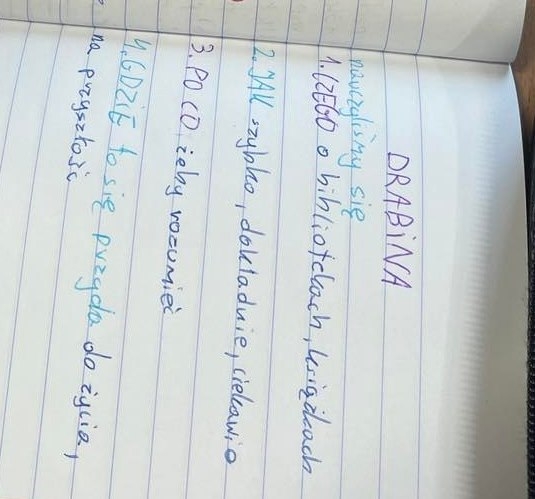 DRABiNA
nauczyliśmy się
1. CZEGO o bibliotekach, książkach
2. JAK szybko, dokładnie, ciekawie
3. PO CO, żeby rozumieć
4. GDZIE to się przyda do życia,
na przyszłość